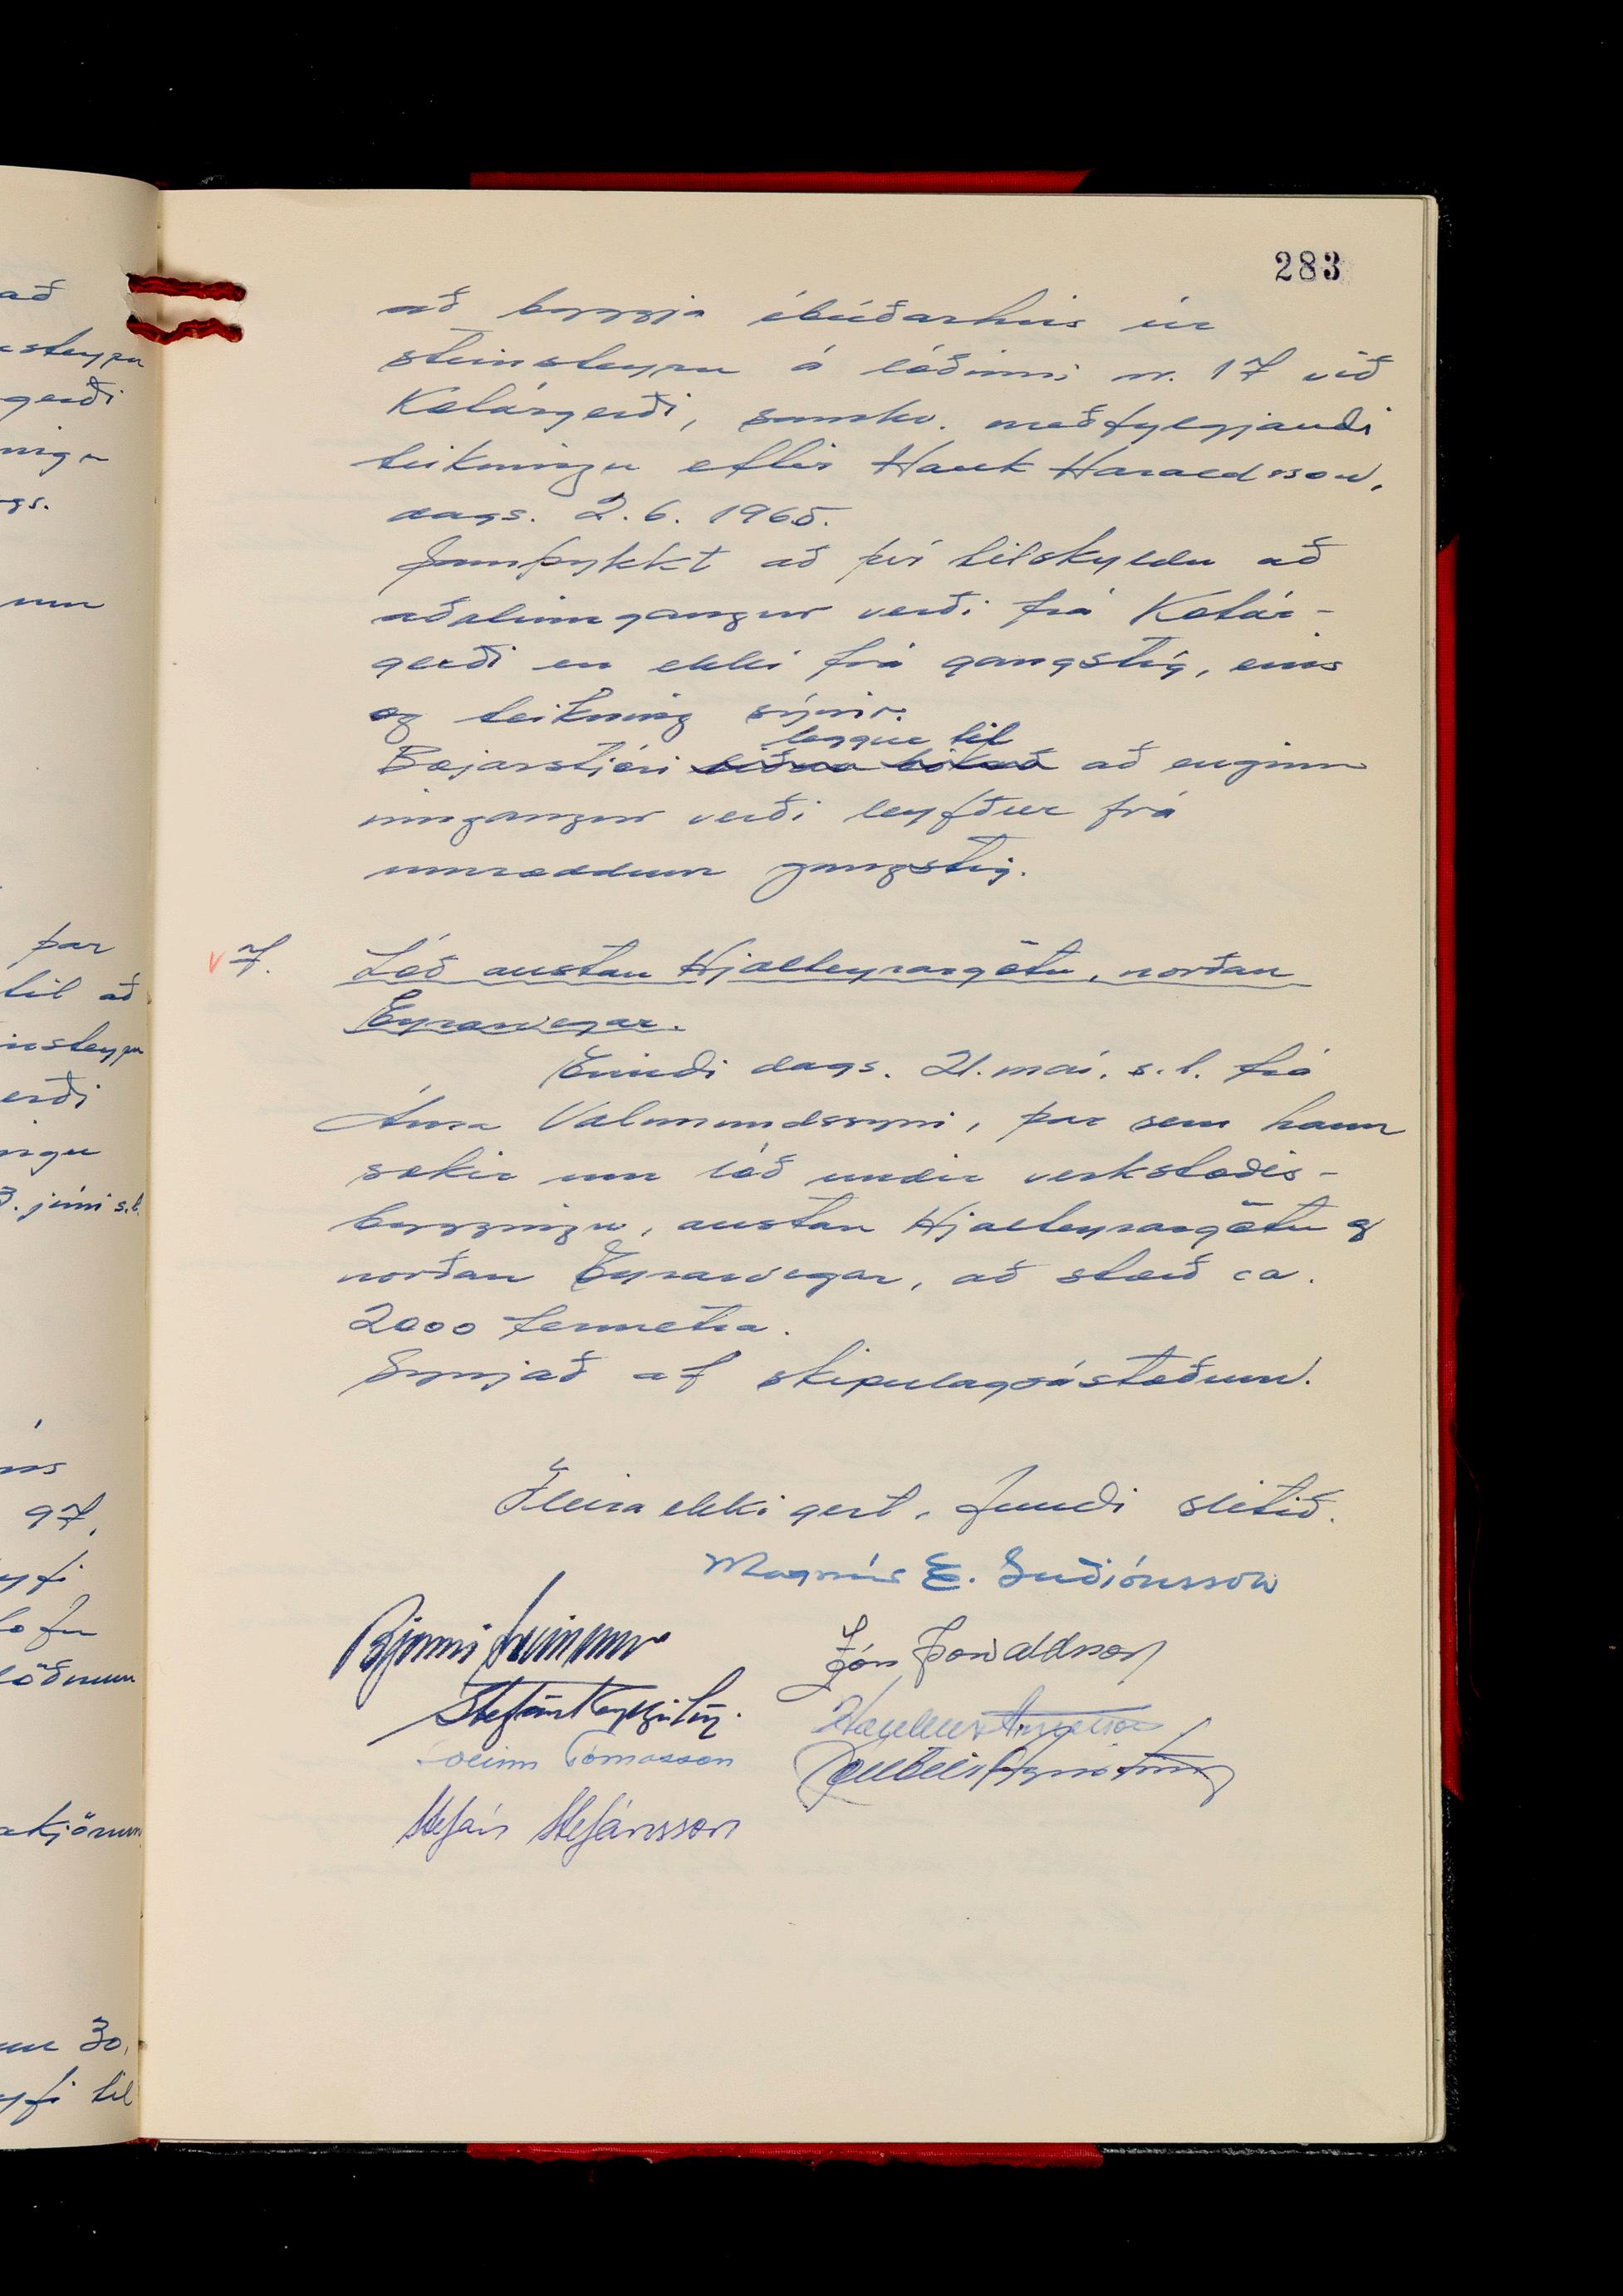 að
steypu
gerði
ningu
gs.
um
þar
til að
insteypu
erði
ingu
3. júní s.l.
97,
yfi
lóðinum
um 30,
yfi til
283
að byggja íbúðarhús úr
steinsteypu á lóðinni nr. 17 við
Kotárgerði, samkv. meðfylgjandi
teikningu eftir Hauk Haraldsson,
dags. 2.6. 1965.
Samþykkt að því tilskyldu að
aðalinngangur verði frá Kotár-
gerði en ekki frá gangstíg, eins
og teikning sýnir.
leggur til
Bæjarstjóri að enginn
inngangur verði leyfður frá
umræddum gangstíg.
v 7. Lóð austan Hjalteyrargötu, norðan
Eyrarvegar.
Erindi dags. 21. maí. s.l. frá
Árna Valmundssyni, þar sem hann
sækir um lóð undir verkstæðis-
byggingu, austan Hjalteyrargötu og
norðan Eyrarvegar, að stærð ca.
2000 fermetra.
Synjað af skipulagsástæðum.
Fleira ekki gert, fundi slitið.
Magnús E. Guðjónsson
Bjarni Einarsson
Jón Þorvaldsson
Stefán Reykjalín.
Haukur Árnason
Sveinn Tómasson
Stefán Stefánsson